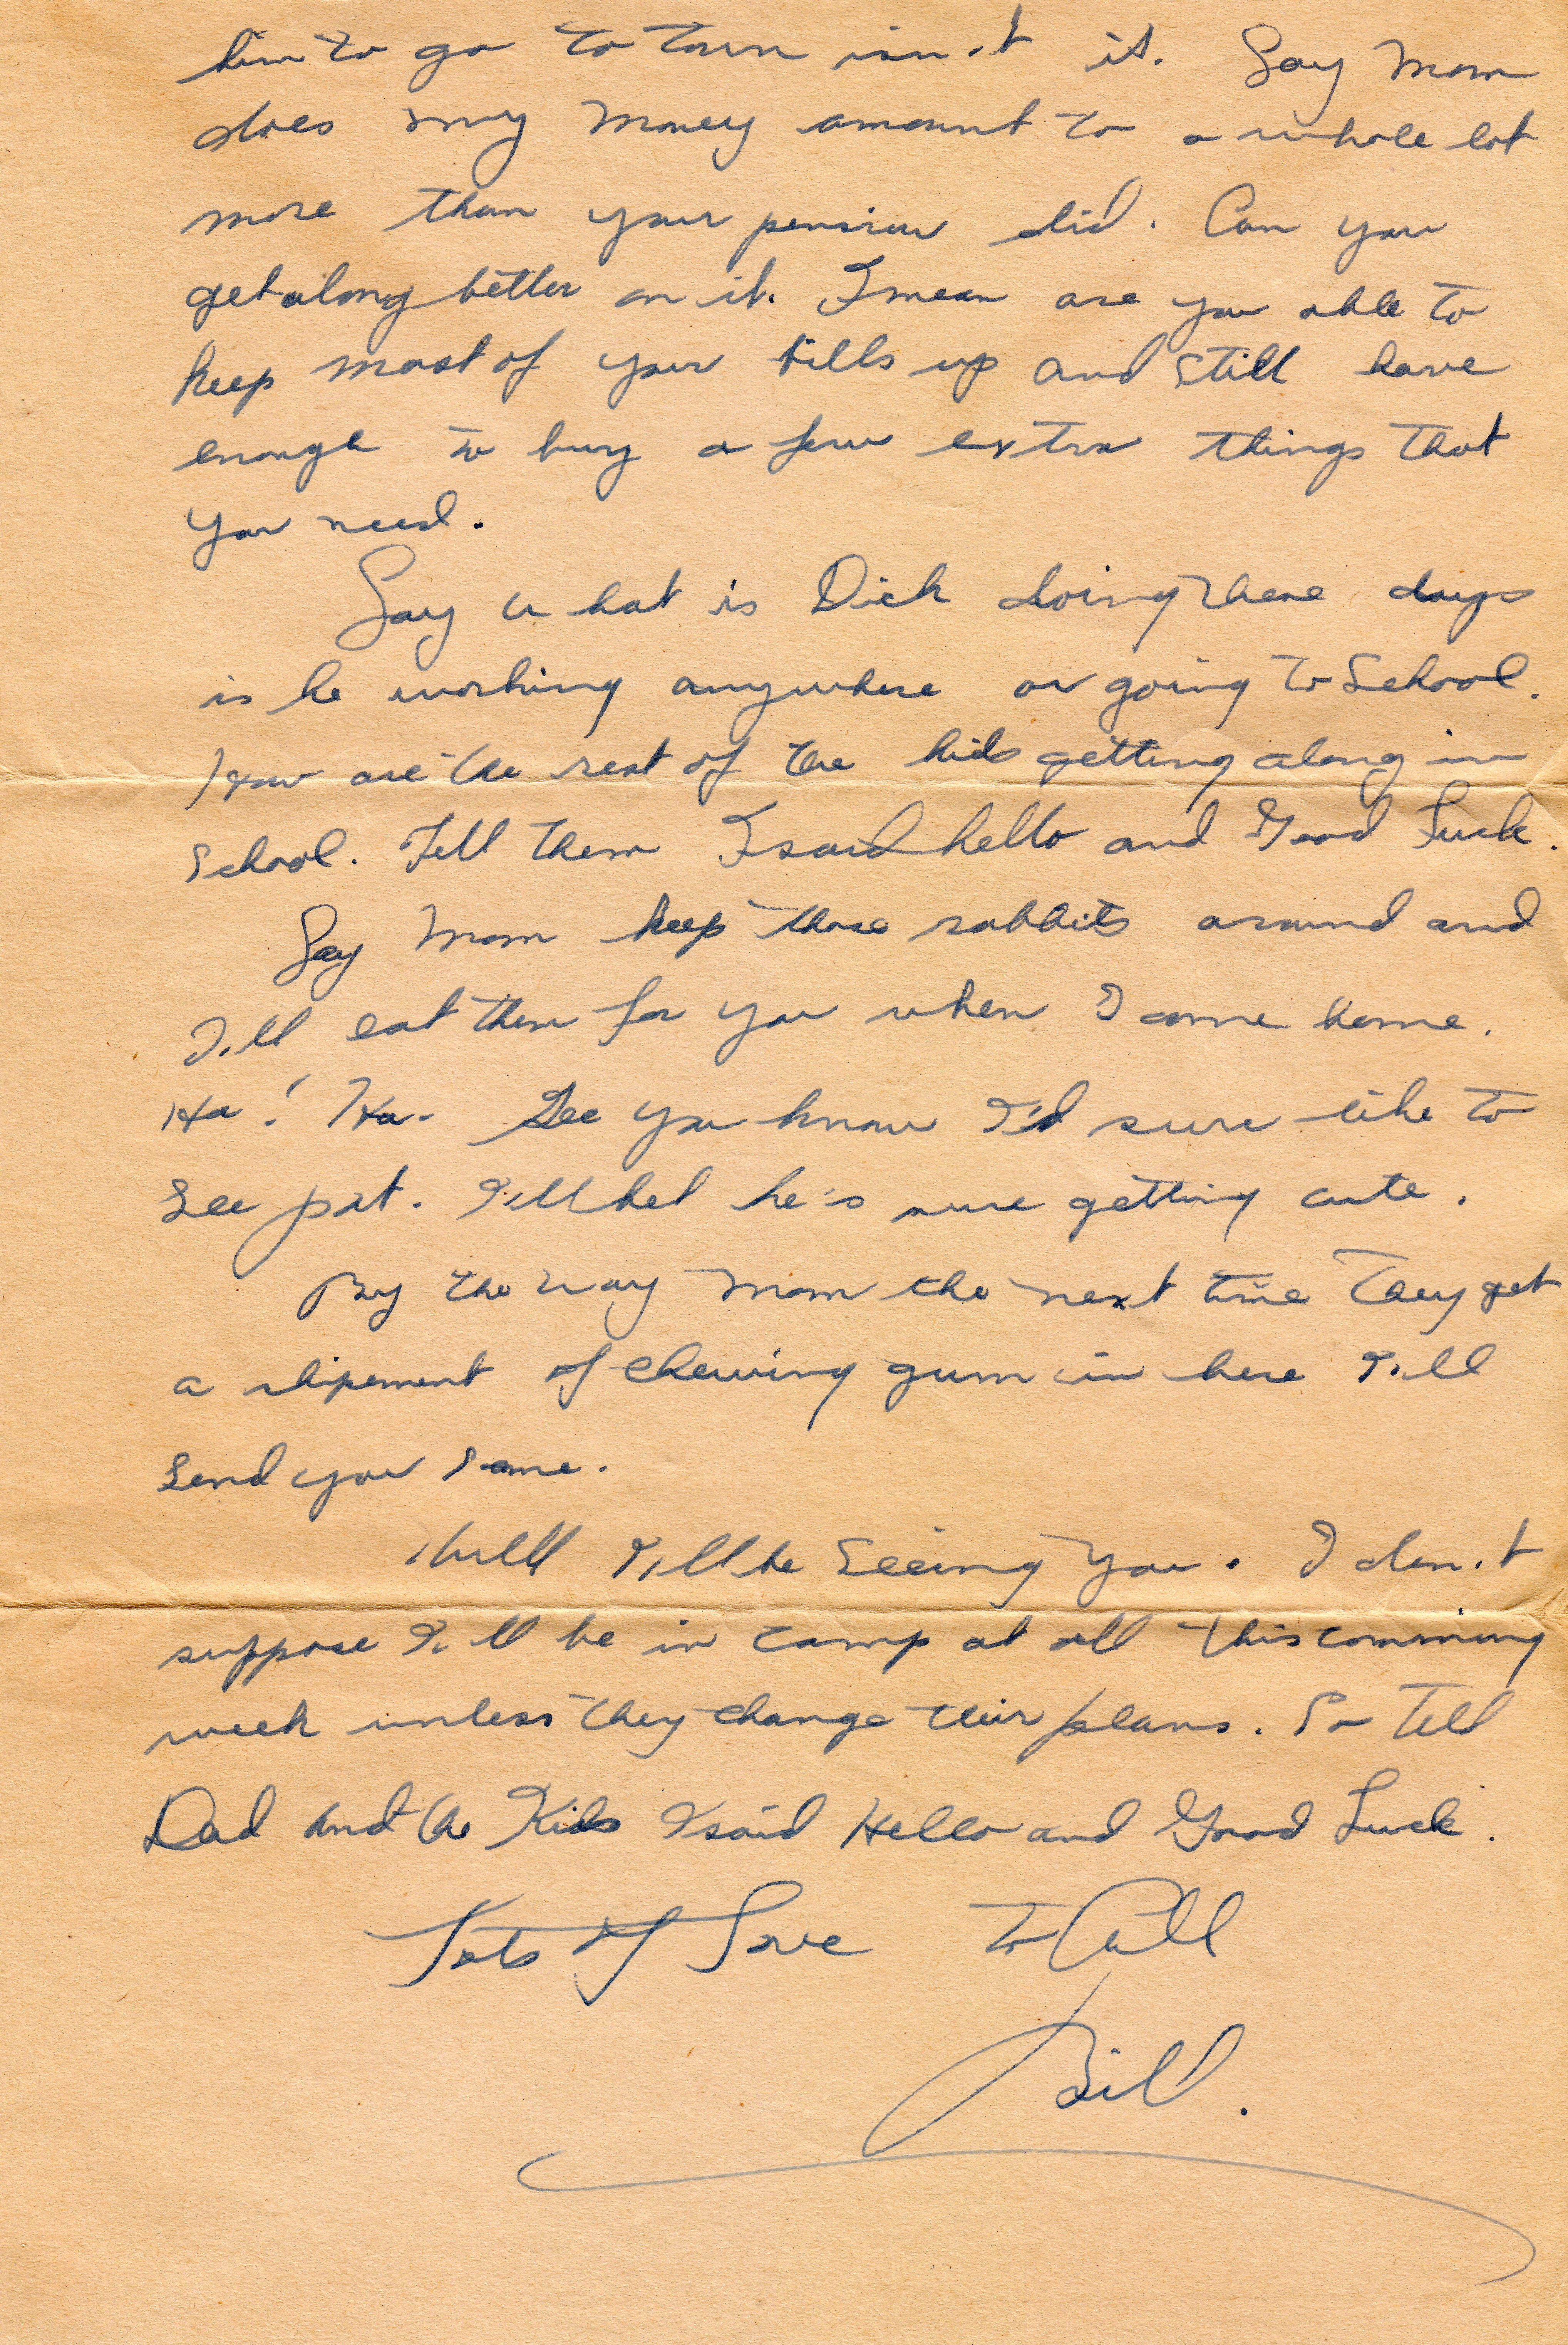 him to go to town isn't it. Say Mom
does my money amount to a whole lot
more than your pension did. Can you
get along better on it. I mean are you able to
keep most of your bills up and still have
enough to buy a few extra things that
you need.
Say what is Dick doing these days
is he working anywhere or going to School.
How are the rest of the kids getting along in
School. Tell them I said hello and Good Luck.
Say Mom keep those rabbits around and
I'll eat them for you when I come home.
Ha! Ha. Gee you know I'd sure like to
see pat. I'll bet he's sure getting cute.
By the way Mom the next time they get
a shipement of chewing gum in here I'll
send you some.
Well I'll be seeing you. I don't
suppose I'll be in camp at all this comming
week unless they change their plans. So Tell
Dad and the Kids I said Hello and Good Luck.
Lots of Love to All
Bill.